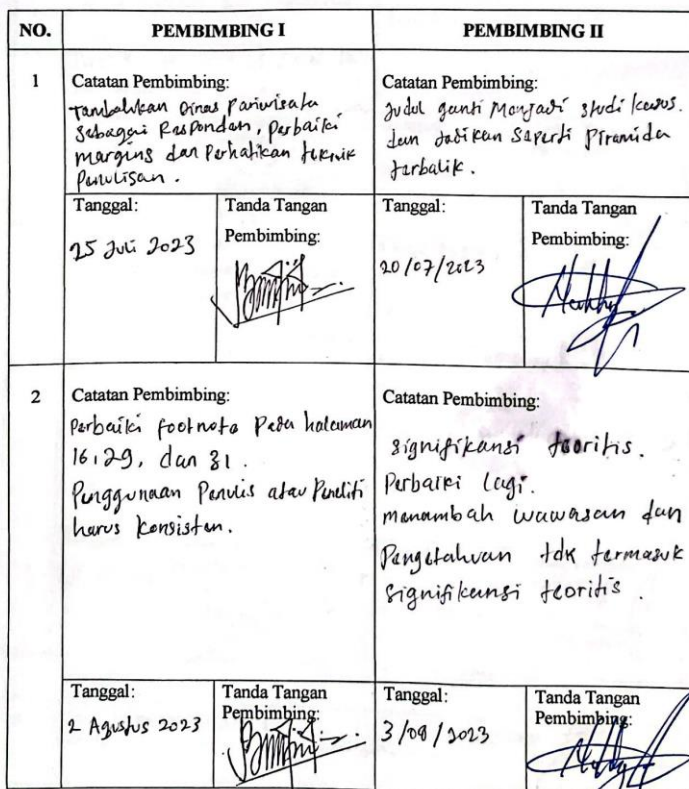 NO.
PEMBIMBING I
PEMBIMBING II
1
Catatan Pembimbing:
Tambahkan Dinas Pariwisata
Sebagai Responden, Perbaiki
margins dan Perhatikan teknik
Penulisan.
Catatan Pembimbing:
Judul ganti Menjadi studi kasus.
dan Jadikan Seperti Piramida
terbalik.
Tanggal:
25 Juli 2023
Tanda Tangan
Pembimbing:
Tanggal:
20/07/2023
Tanda Tangan
Pembimbing:
2
Catatan Pembimbing:
Perbaiki footnote Pada halaman
16, 29, dan 31.
Penggunaan Penulis atau Peneliti
harus Konsisten.
Catatan Pembimbing:
signifikansi teoritis.
Perbaiki lagi.
manambah wawasan dan
Pengetahuan tdk termasuk
signifikansi teoritis.
Tanggal:
2 Agustus 2023
Tanda Tangan
Pembimbing:
Tanggal:
3/08/2023
Tanda Tangan
Pembimbing: